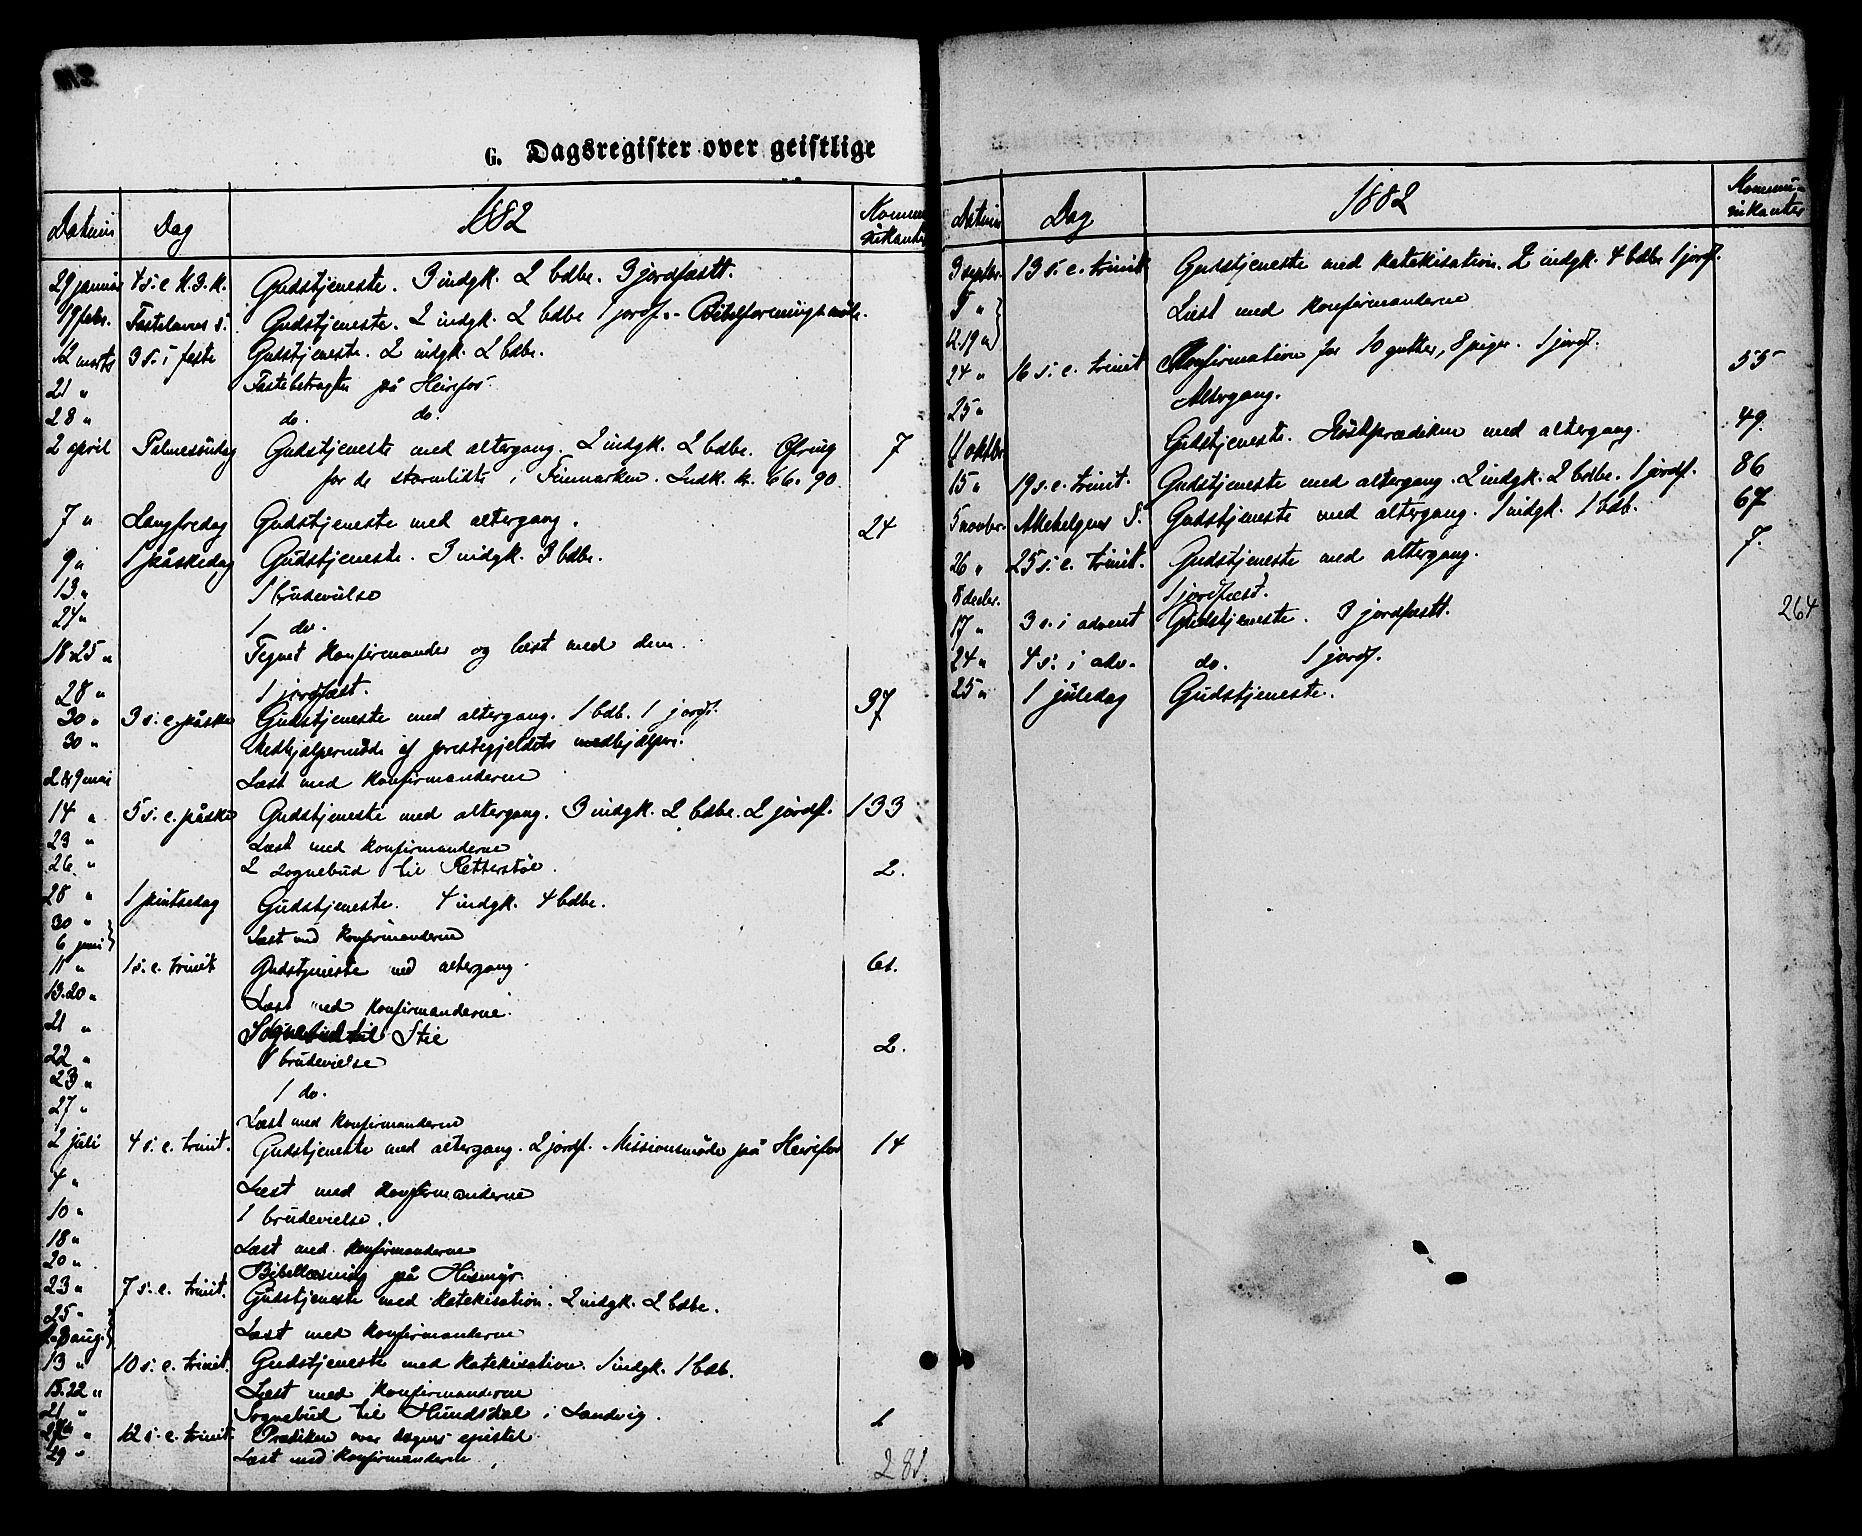 G. Dagsregister over geistlige
Datum Dag 1882 Kommunikanter
29 januar 4 s. e. H. 3. K. Gudstjeneste. 3 indgk. 2 bdbe. 3 jordfæstt.
19 febr. Fastelavns s. Gudstjeneste. 2 indgk. 2 bdbe 1 jordf. - Bibelforeningsmøde.
12 marts 3 s. i faste Gudstjeneste. 2 indgk. 2 bdbe.
21 " Fastebetragtn på Heirefos.
28 " do. do.
2 april Palmesöndag Gudstjeneste med altergang. 2 indgk. 2 bdbe. Ofring 7
for de stormlidte i Finmarken. Indk. kr. 66.90
7 " Langfredag Gudstjeneste med altergang. 24
9 " 1 påskedag Gudstjeneste. 3 indgk. 3 bdbe.
13 " 1 brudevielse
24 " 1 do.
18. 25 " Tegnet konfirmander og læst med dem.
28 " 1 jordfæst.
30 " 3 s. e. påske Gudstjeneste med altergang. 1 bdb. 1 jordf. 97
30 " Medhjelpermöde af prestegjeldets medhjælpere.
2 & 9 mai Læst med konfirmanderne
14 " 5 s. e. påske Gudstjeneste med altergang. 3 indgk. 2 bdbe. 2 jordf. 133
23 " Læst med konfirmanderne
26 " 2 sognebud til Retterstöl. 2.
28 " 1 pintsedag Gudstjeneste. 4 indgk. 4 bdbe.
30 "
6 juni Læst med konfirmanderne
11 " 1 s. e. trinit Gudstjeneste med altergang. 61.
13. 20 " Læst med konfirmanderne.
21 " Sognebud til Stie 2.
22 " 1 brudevielse
23 " 1 do.
27 " Læst med konfirmanderne
2 juli 4 s. e. trinit. Gudstjeneste med altergang. 2 jordf. - Missionsmöde på Heirefos 14
4 " Læst med konfirmanderne
10 " 1 brudevielse.
18 " Læst med konfirmanderne
20 " Bibellæsning på Hismyr
23 " 7 s. e. trinit. Gudstjeneste med katekisation. 2 indgk. 2 bdbe.
25 "
1. 8 aug. Læst med konfirmanderne
13 " 10 s. e. trinit. Gudstjeneste med katekisation. 1 indgk. 1 bdb.
15. 22 " Læst med konfirmanderne
21 " Sognebud til Hundsdal i Landvig. 1
27 " 12 s. e. trinit. Prædiken over dagens epistel
29 " Læst med konfirmanderne
281.
Datum Dag 1882 Kommunikanter
3 septbr. 13 s. e. trinit Gudstjeneste med katekisation. 2 indgk. 4 bdbe 1 jordf.
5 "
12. 19 " Læst med konfirmanderne
24 " 16 s. e. trinit Konfirmation for 10 gutter, 8 piger. 1 jordf.
25 " Altergang. 55
1 oktbr. Gudstjeneste. Höstprædiken med altergang. 49.
15 " 19 s. e. trinit. Gudstjeneste med altergang. 2 indgk. 2 bdbe. 1 jordf. 86
5 novbr. Allehelgens S. Gudstjeneste med altergang. 1 indgk. 1 bdb. 67
26 " 25 s. e. trinit. Gudstjeneste med altergang. 7.
8 decbr. 1 jordfæst.
17 " 3 s. i advent Gudstjeneste. 3 jordfæstt. 264
24 " 4 s. i adv. do. 1 jordf.
25 " 1 juledag Gudstjeneste.